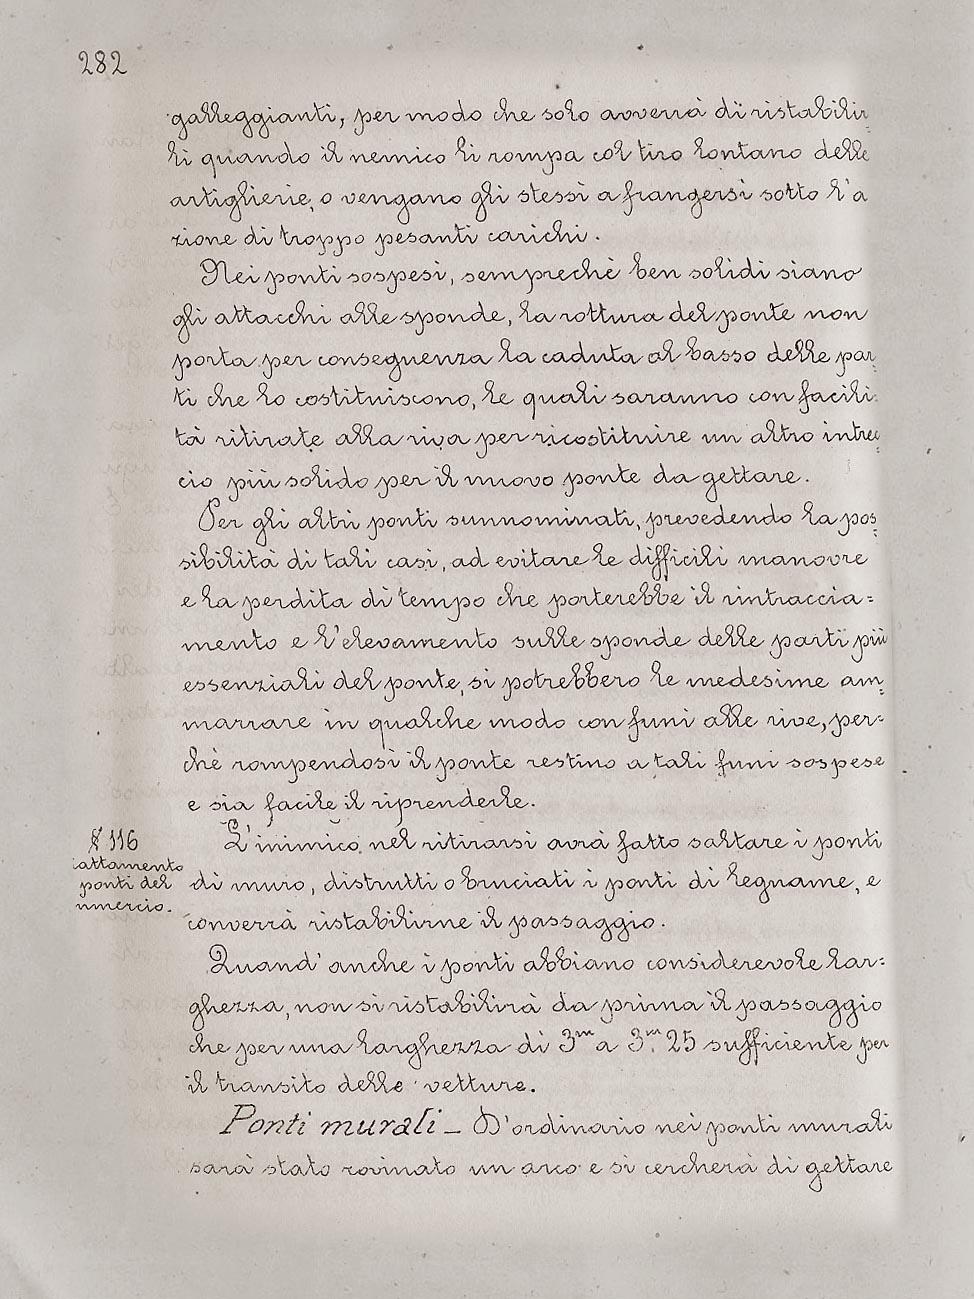 282
galleggianti, per modo che solo avverrà di ristabilir=
li quando il nemico li rompa col tiro lontano delle
artiglierie, o vengano gli stessi a frangersi sotto l'a
zione di troppo pesanti carichi.
Nei ponti sospesi, sempreché ben solidi siano
gli attacchi alle sponde, la rottura del ponte non
porta per conseguenza la caduta al basso delle par=
ti che lo costituiscono, le quali saranno con facili=
tà ritirate alla riva per ricostituire un altro intrec=
cio più solido per il nuovo ponte da gettare.
Per gli altri ponti sunnominati, prevedendo la pos=
sibilità di tali casi, ad evitare le difficili manovre
e la perdita di tempo che porterebbe il rintraccia=
mento e l'elevamento sulle sponde delle parti più
essenziali del ponte, si potrebbero le medesime am=
marrare in qualche modo con funi alle rive, per=
chè rompendosi il ponte restino a tali funi sospese
e sia facile il riprenderle.
§ 116
iattamento
ponti del
mmercio.
L'inimico nel ritirarsi avrà fatto saltare i ponti
di muro, distrutti o bruciati i ponti di legname, e
converrà ristabilirne il passaggio.
Quand'anche i ponti abbiano considerevole lar=
ghezza, non si ristabilirà da prima il passaggio
che per una larghezza di 3m a 3m. 25 sufficiente per
il transito delle vetture.
Ponti murali _ D'ordinario nei ponti murali
sarà stato rovinato un arco e si cercherà di gettare